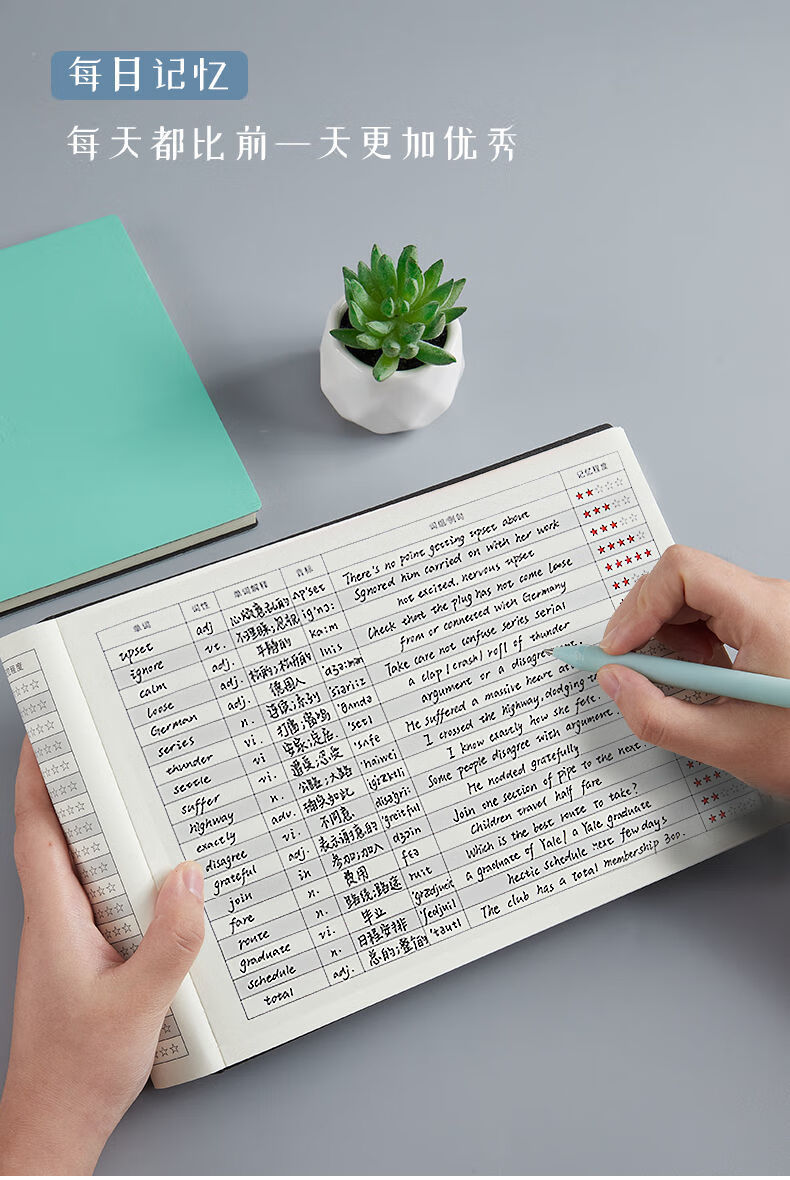 每日记忆
每天都比前一天更加优秀
单词 词性 单词解释 音标 词组/例句 记忆程度
upset adj 心烦意乱的 ʌp'set There's no point getting upset about
ignore vt. 不理睬;忽视 ig'nɔ: Ignored him carried on with her work
calm adj. 平静的 ka:m not excited, nervous upset
loose adj. 松的;松开的 lu:s Check that the plug has not come loose
German adj. 德国人 'dʒə:mən from or connected wien Germany
series n. 连续;系列 'siəri:z Take care not confuse series serial
thunder vi. 打雷;雷鸣 'θʌndə a clap/crash/roll of thunder
settle vi. 安家;定居 'setl argument or a
suffer vi. 遭受;忍受 'sʌfə He suffered a massive heart
highway n. 公路;大路 'haiwei I crossed the highway, dodging
exactly adv. 确实如此 I know exactly how she felt
disagree vi. 不同意 disəgri: Some people disagree with argument
grateful adj. 表示谢意的 'greitful He nodded gratefully
join in 参加;加入 dʒɔin Join one section of pipe to the next.
fare n. 费用 feə Children travel half fare
route n. 路线;路途 ru:t Which is the best route to take?
graduate vi. 毕业 'grædjueit a graduate of Yale/a Yale graduate
schedule n. 日程安排 'ʃedju:l hectic schedule next few days
total adj. 总的;整个的 'təutl The club has a total membership 300.